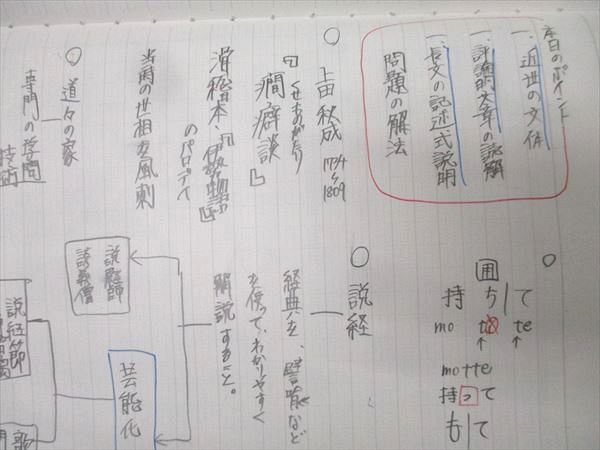 本日のポイント
一、近世の文体
一、評論的文章の読解
一、長文の記述式説明
問題の解法
○ 上田秋成 1734〜1809
くせものがたり
『癇癖談』
滑稽本、『伊勢物語』
のパロディ
当用の世相を風刺
○ 道々の家
専門の学問
技術
○ 囲
持ち|て
mo ti te
↑ ↑
motte
持って
も|て
○ 説経
経典を、譬喩など
を使って、わかりやすく
解説すること。
説経師
談義僧
芸能化
説経節